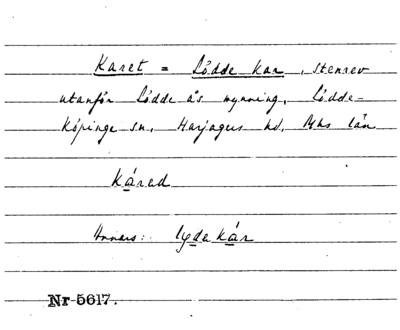 Karet = Lödde kar, stenrev
utanför Lödde ås mynning, Lödde-
Köpinge sn, Harjagers hd, Mhs län
kárad
Annars: lydakár
Nr 5617.